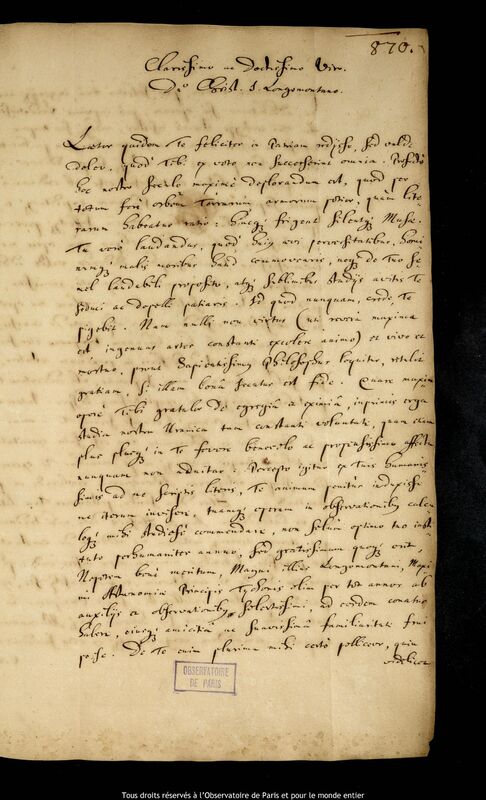 870.
Clarissimo ac Doctissimo Viro.
Dno Christ. S. Longomontano.
Laetor quidem Te feliciter in Patriam redijsse, sed valdè
doleo, quod Tibi ex voto non successerint omnia. Profectò
hoc nostro seculo maximè deplorandum est, quod per
totum ferè orbem Terrarum armorum potior, quàm lite
rarum habeatur ratio: hincq; frigent silentq; Musae.
Tu verò laudandus, quod huius aevi perversitatibus, homi
numq; malis moribus haud commovearis, neq; de Tuo se
mel laudabili proposito, atq; sublimibus studijs avitis Te
seduci ac depelli patiaris. Id quod nunquam, crede, Te
pigebit. Nam nulli non virtus (uti reverà maxima
est ingenuas artes constanti excolere animo) et vivo et
mortuo, prout Sapientissimus Philosophus loquitur, retulit
gratiam, si illam bonâ secutus est fide. Quare maxim
operè Tibi gratulor de egregia et eximia, inprimis erga
studia nostra Uranica tam constanti voluntate, quam etiam
plus plusq; in Te fovere benevolo ac propensissimo affectu
nunquam non adnitar. Percepto igitur ex Tuis humanis
simis ad me scriptis literis, Te animum penitus induxisse
me iterum invisere, tuamq; operam in observationibus caelen
logij mihi studiosè commendare, non solùm optimo tuo insti
tuto perhumaniter annuo, sed gratissimum quoq; erit,
Nepotem benè meritum, Magni illius Longomontani, Maxi
mi Astronomiae Principis Tychonis olim per tot annos ab
auxilijs et observationibus solertissimi, ad eosdem conatus
habere, eiusq; amicitia ac suavissimâ familiaritate frui
posse. De Te enim plurima mihi certò polliceor, quin
videlicet
OBSERVATOIRE
DE PARIS
Tous droits réservés à l'Observatoire de Paris et pour le monde entier